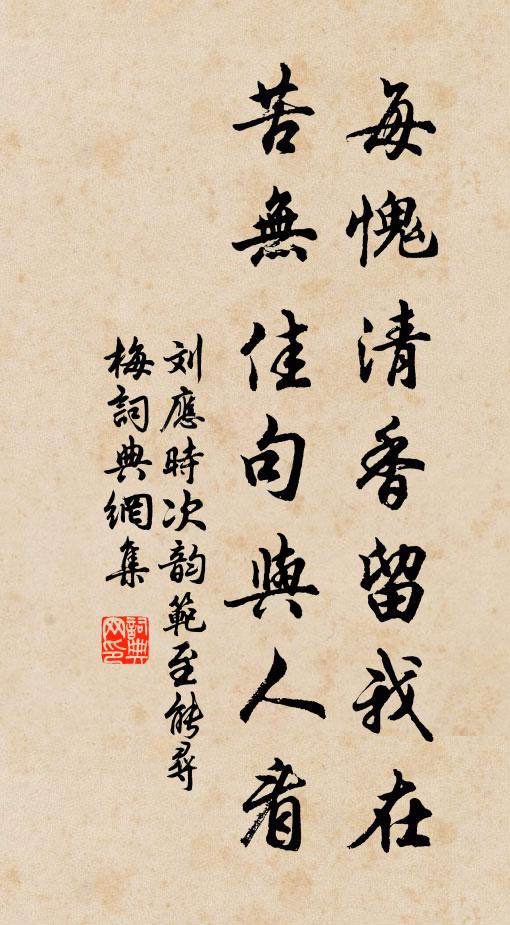 每愧清香留我在
苦無佳句與人看
刘應時次韵範至能尋
梅詞典網集
詞典網印